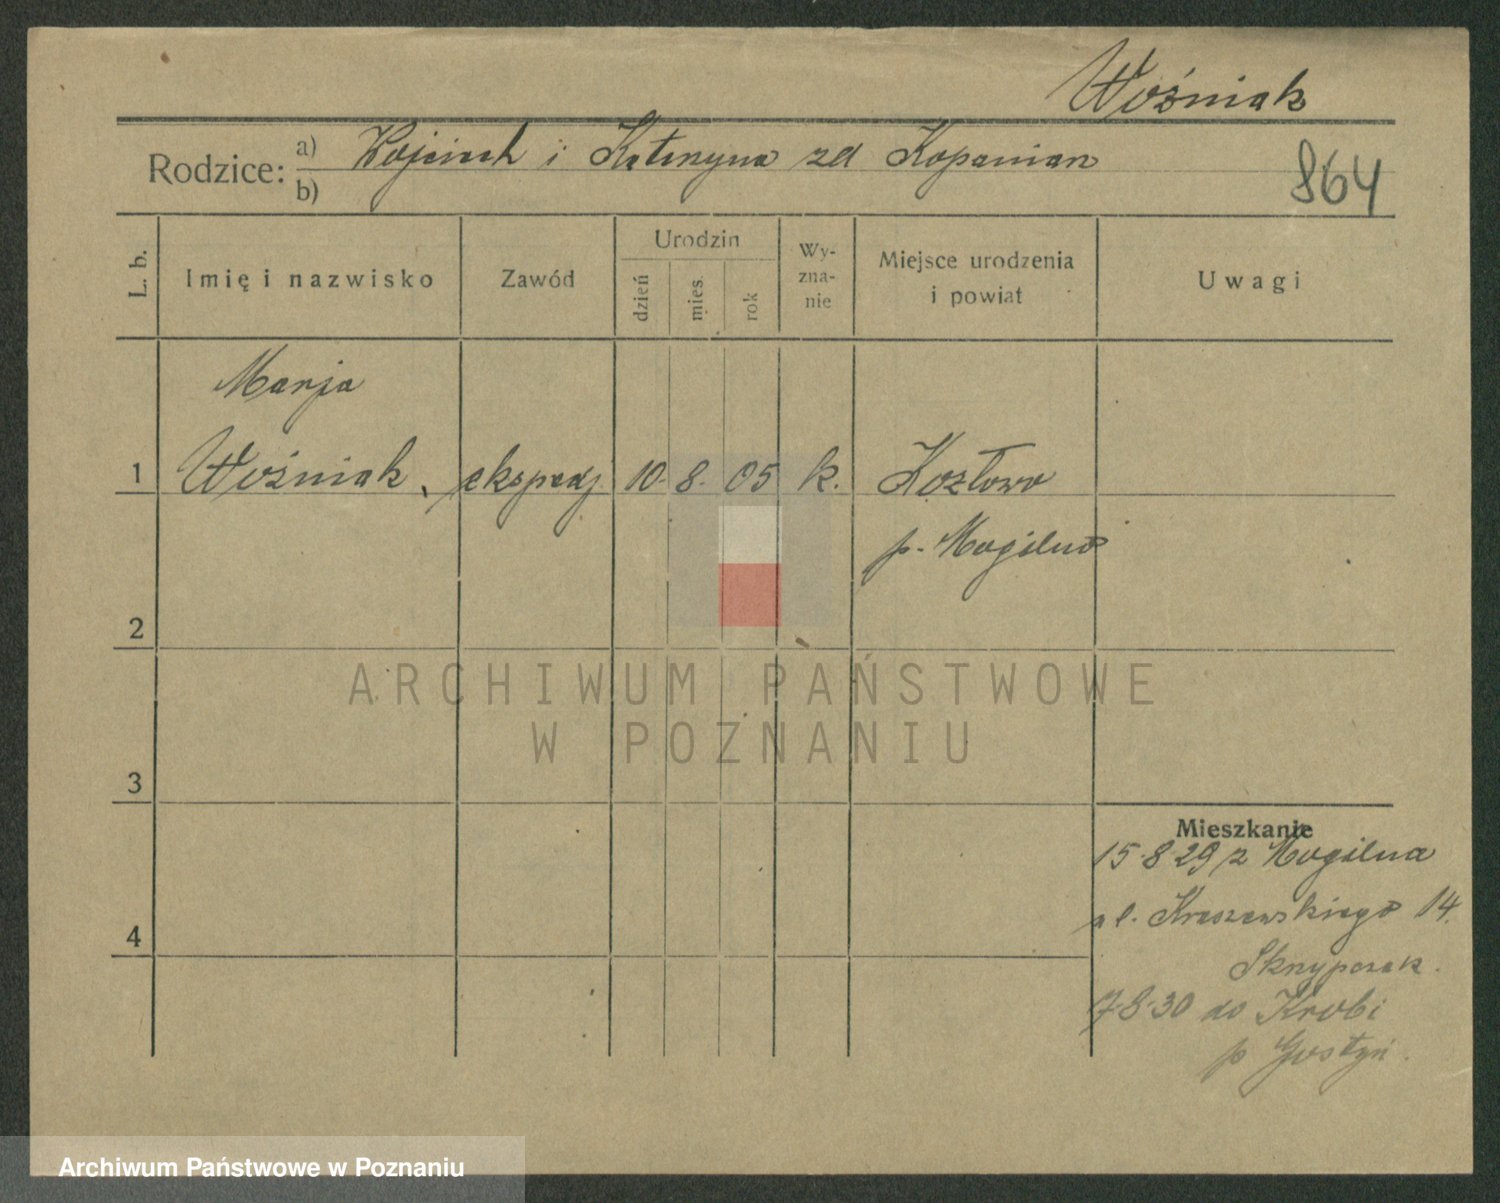 Woźniak
Rodzice: a) Wojciech i Katarzyna zd Kopanian
b)
864
L. b.
Imię i nazwisko
Zawód
Urodzin
dzień
mies.
rok
Wy-
zna-
nie
Miejsce urodzenia
i powiat
Uwagi
Marja
1 Woźniak, ekspedj 10. 8. 05 k. Kozłowo
p. Mogilno
2
3
4
Mieszkanie
15.8.29 z Mogilna
ul. Kraszewskiego 14.
Skrypczak.
7.8.30 do Krobi
p Gostyń.
ARCHIWUM PAŃSTWOWE
W POZNANIU
Archiwum Państwowe w Poznaniu